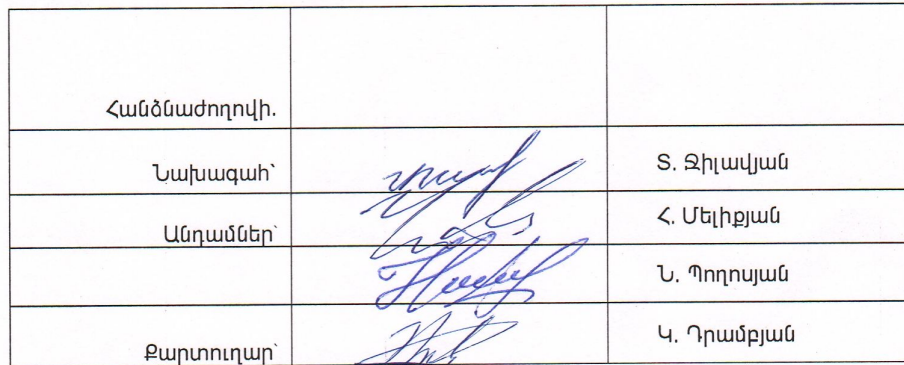 Հանձնաժողովի.
Նախագահ՝ Տ. Ջիլավյան
Անդամներ՝ Հ. Մելիքյան
Ն. Պողոսյան
Քարտուղար՝ Կ. Դրամբյան